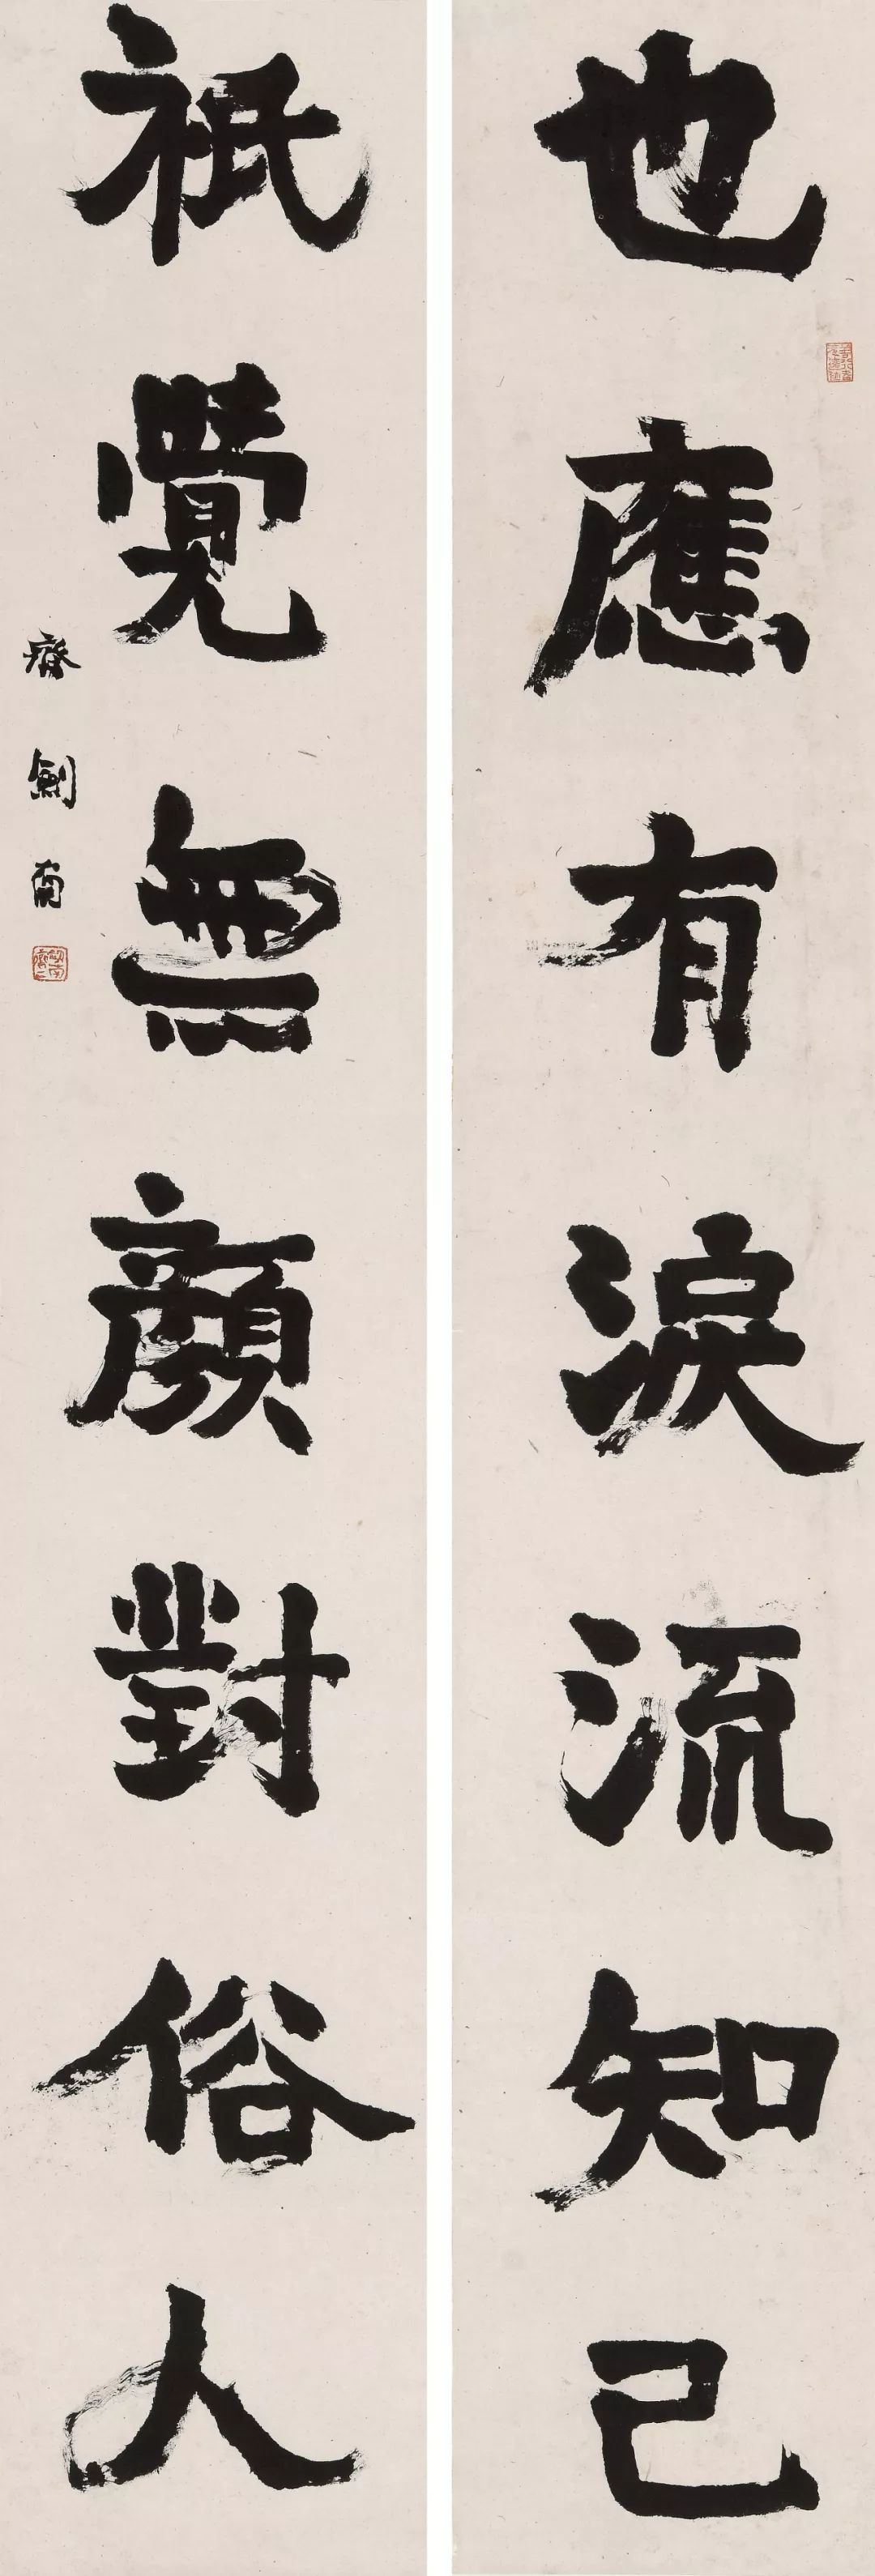 也應有淚流知己
祇覺無顏對俗人
劍南